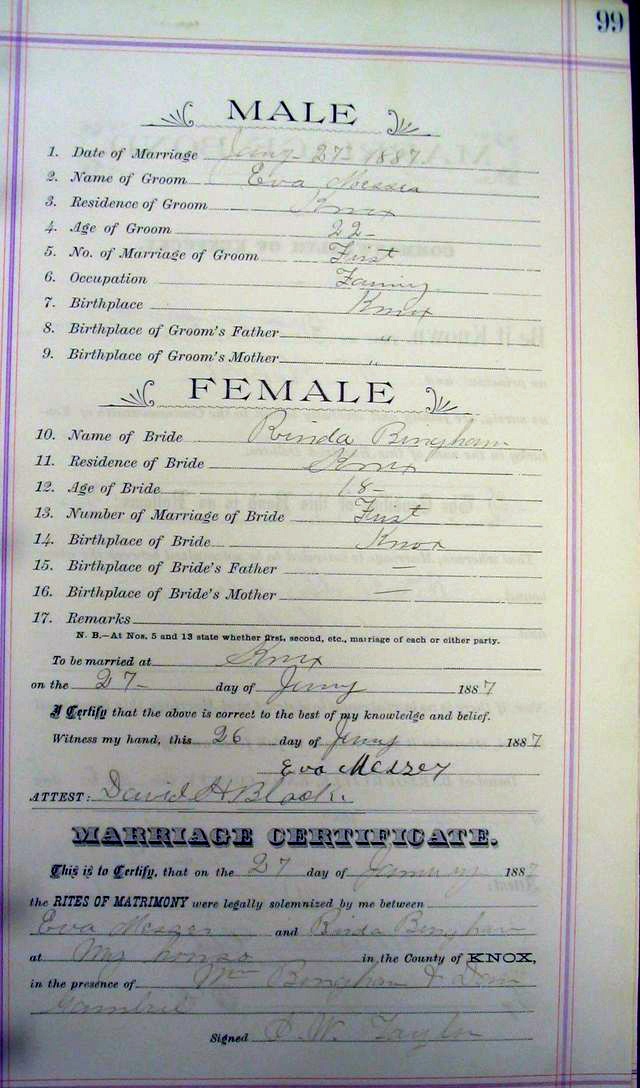 99
MALE
1. Date of Marriage Jany 27 1887
2. Name of Groom Eva Messer
3. Residence of Groom Knox
4. Age of Groom 22-
5. No. of Marriage of Groom First
6. Occupation Faming
7. Birthplace Knox
8. Birthplace of Groom's Father "
9. Birthplace of Groom's Mother "
FEMALE
10. Name of Bride Rinda Bingham
11. Residence of Bride Knox
12. Age of Bride 18-
13. Number of Marriage of Bride First
14. Birthplace of Bride Knox
15. Birthplace of Bride's Father —
16. Birthplace of Bride's Mother —
17. Remarks
N. B.—At Nos. 5 and 13 state whether first, second, etc., marriage of each or either party.
To be married at Knox
on the 27- day of Jany 1887
I Certify that the above is correct to the best of my knowledge and belief.
Witness my hand, this 26 day of Jany 1887
Eva Messer
ATTEST: David H Black
MARRIAGE CERTIFICATE.
This is to Certify, that on the 27 day of January 1887
the RITES OF MATRIMONY were legally solemnized by me between
Eva Messer and Rinda Bingham
at My house in the County of KNOX,
in the presence of Wm Bingham &
Signed W. Taylor